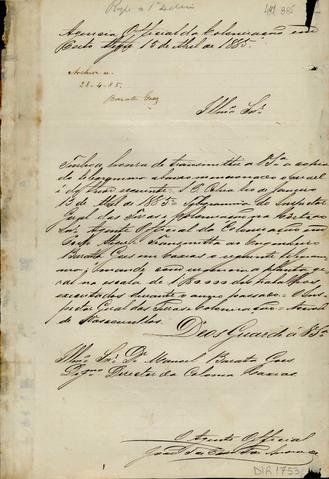 Agencia Official da Colonisação em
Porto Alegre 15 de Abril de 1885.
Archive-se
28-4-85.
Barata Goes
Illmo Snr
Tenho a honra de transmittir a VSa a copia
do telegramma abaixo mencionado
é do theor seguinte: Rio de Janeiro
13 de Abril de 1885. Telegramma do Inspector
Geral das Terras e Colonisação
Snr Agente Official da Colonisação em
Porto Alegre. Transmitta ao Engenheiro
Barata Goes em Caxias o seguinte telegramma
mande com urgencia planta geral
na escala de dos trabalhos
executados durante o anno passado. O Inspector
Geral das Terras e Colonisação
de Vasconcellos.
Deos Guarde á VSa
Illmo Snr Dr Manoel Barata Goes
Digno Director da Colonia Caxias
O Agente Official
DIR 1753